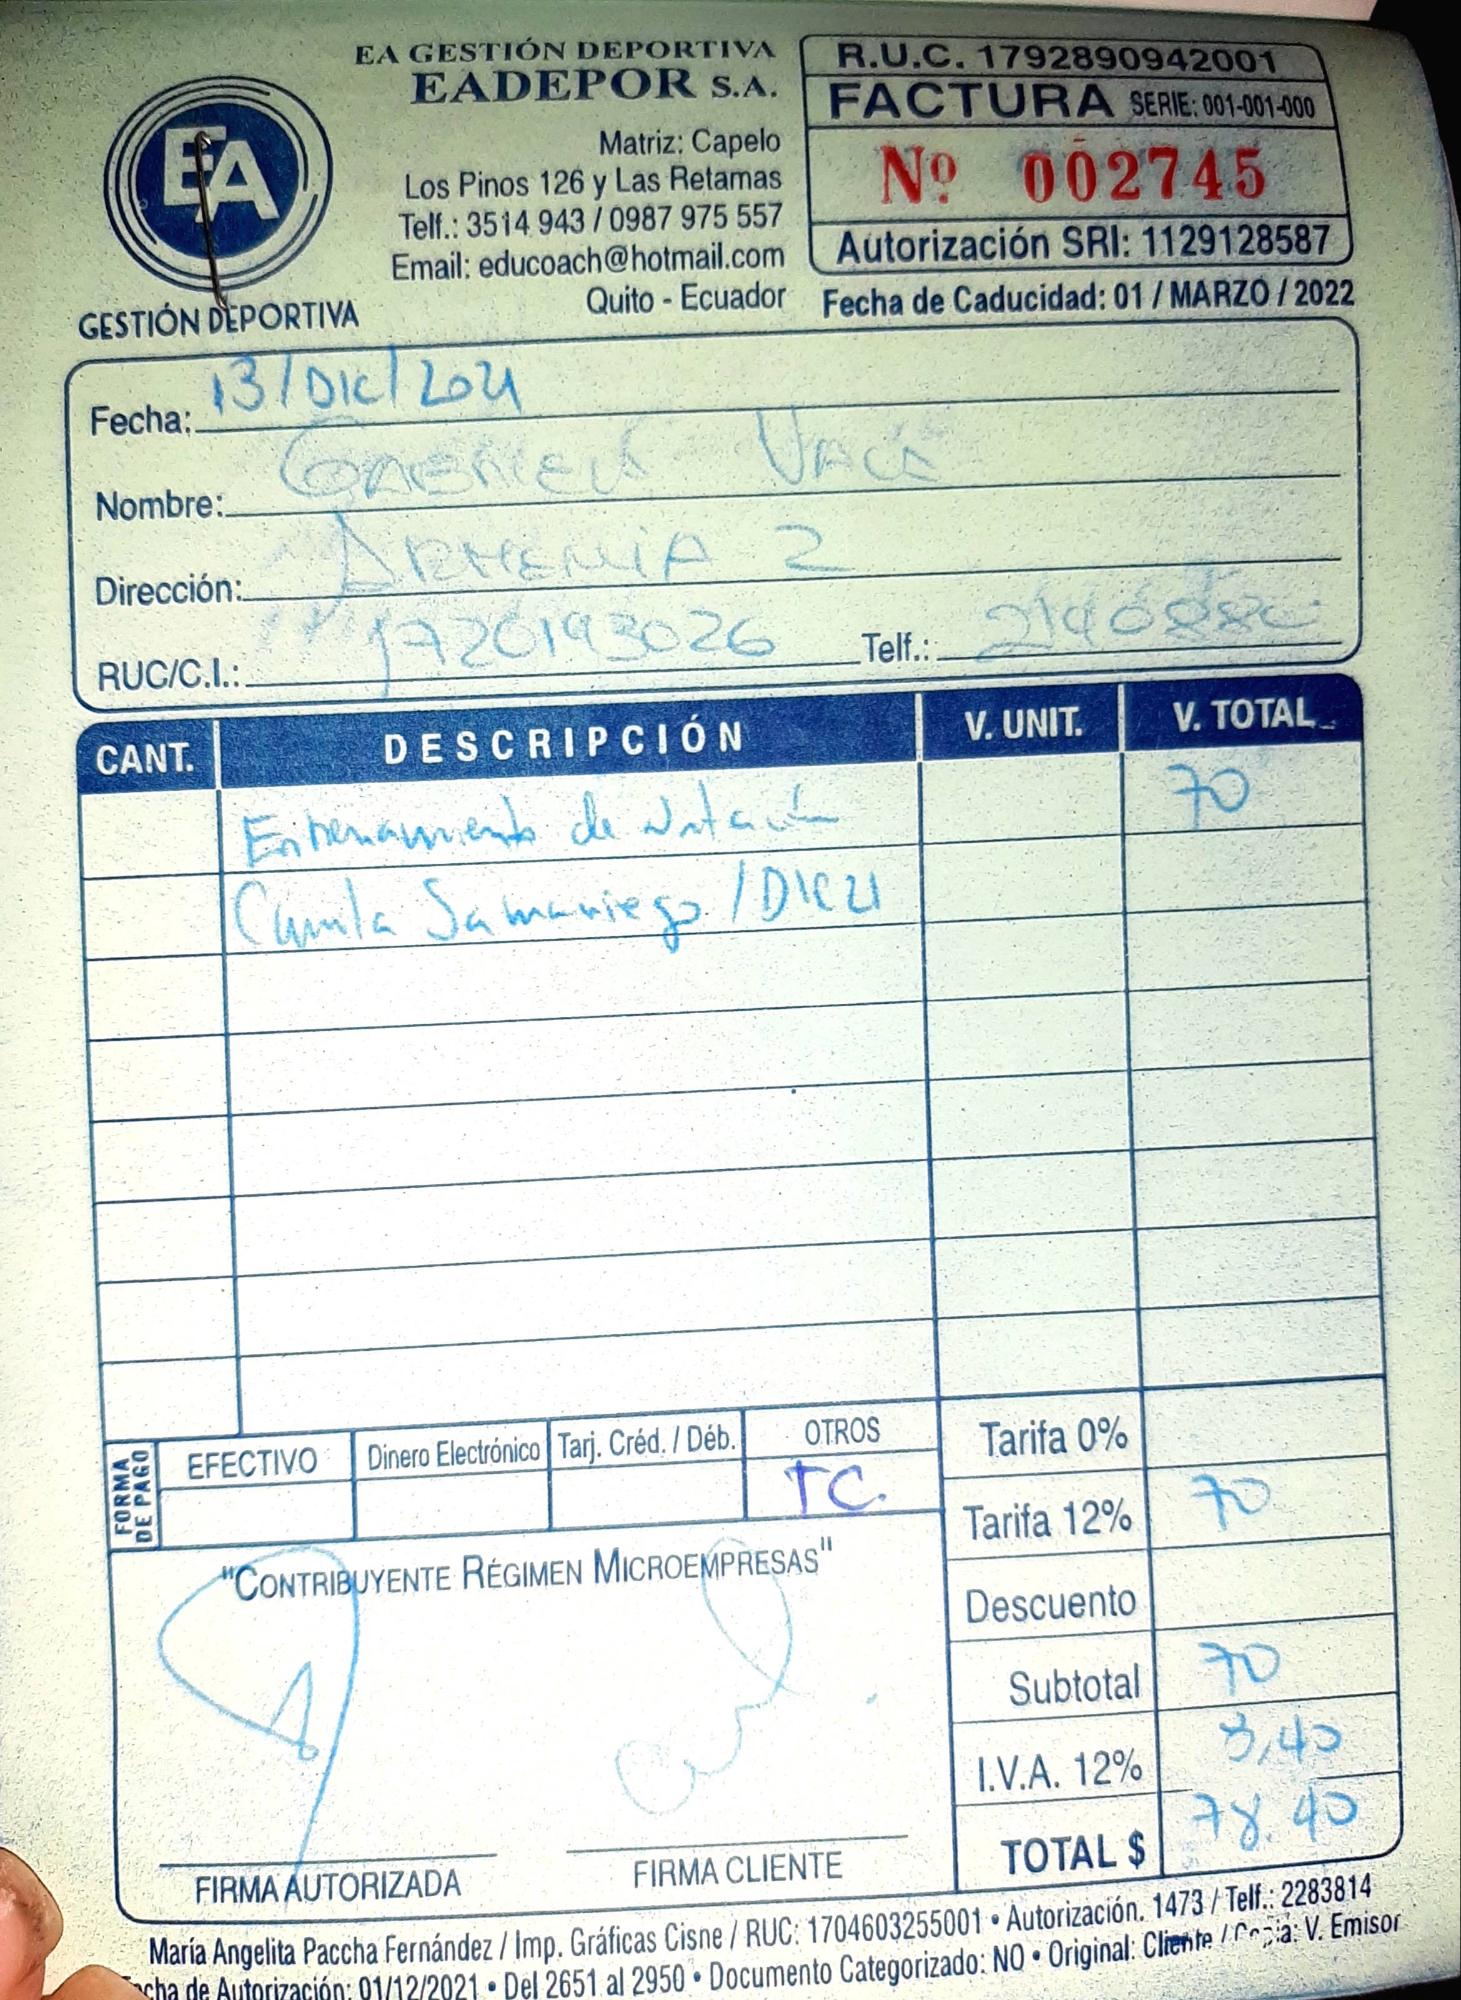 EA GESTIÓN DEPORTIVA
EADEPOR S.A.
EA
GESTIÓN DEPORTIVA
Matriz: Capelo
Los Pinos 126 y Las Retamas
Telf.: 3514 943 / 0987 975 557
Email: educoach@hotmail.com
Quito - Ecuador
R.U.C. 1792890942001
FACTURA SERIE: 001-001-000
Nº 002745
Autorización SRI: 1129128587
Fecha de Caducidad: 01 / MARZO / 2022
Fecha: 13/DIC/2021
Nombre: GABRIELA VACA
Dirección: ARMENIA 2
RUC/C.I.: 1720193026 Telf.:
CANT. DESCRIPCIÓN V. UNIT. V. TOTAL
Entrenamiento de Natación 70
Camila Samaniego / DIC 21
FORMA DE PAGO
EFECTIVO Dinero Electrónico Tarj. Créd. / Déb. OTROS
TC.
Tarifa 0%
Tarifa 12% 70
Descuento
Subtotal 70
I.V.A. 12% 8,40
TOTAL $ 78.40
"CONTRIBUYENTE RÉGIMEN MICROEMPRESAS"
FIRMA AUTORIZADA FIRMA CLIENTE
María Angelita Paccha Fernández / Imp. Gráficas Cisne / RUC: 1704603255001 • Autorización. 1473 / Telf.: 2283814
cha de Autorización: 01/12/2021 • Del 2651 al 2950 • Documento Categorizado: NO • Original: Cliente / Copia: V. Emisor